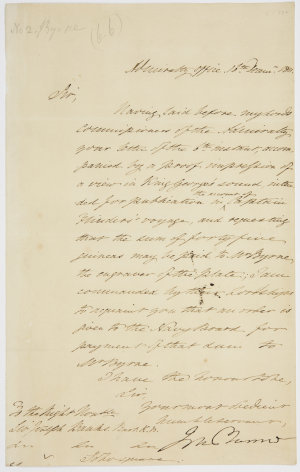 No 2. Byrne
(66)
Admiralty Office 18th Jany. 1811.
Sir,
Having laid before my Lords
Commissioners of the Admiralty
your letter of the 6th instant, accom
panied by a proof impression of
a view in King Georges Sound inten
ded for publication in the account of Captain
Flinders' voyage, and requesting
that the sum of forty five
guineas may be paid to Mr Byrne,
the engraver of the plate; I am
commanded by their Lordships
to acquaint you that an order is
given to the Navy Board for
payment of that sum to
Mr Byrne.
I have the honor to be,
Sir,
Your most obedient
humble servant,
To the Right Honble.
Sir Joseph Banks Bart. K.B.
Soho Square.